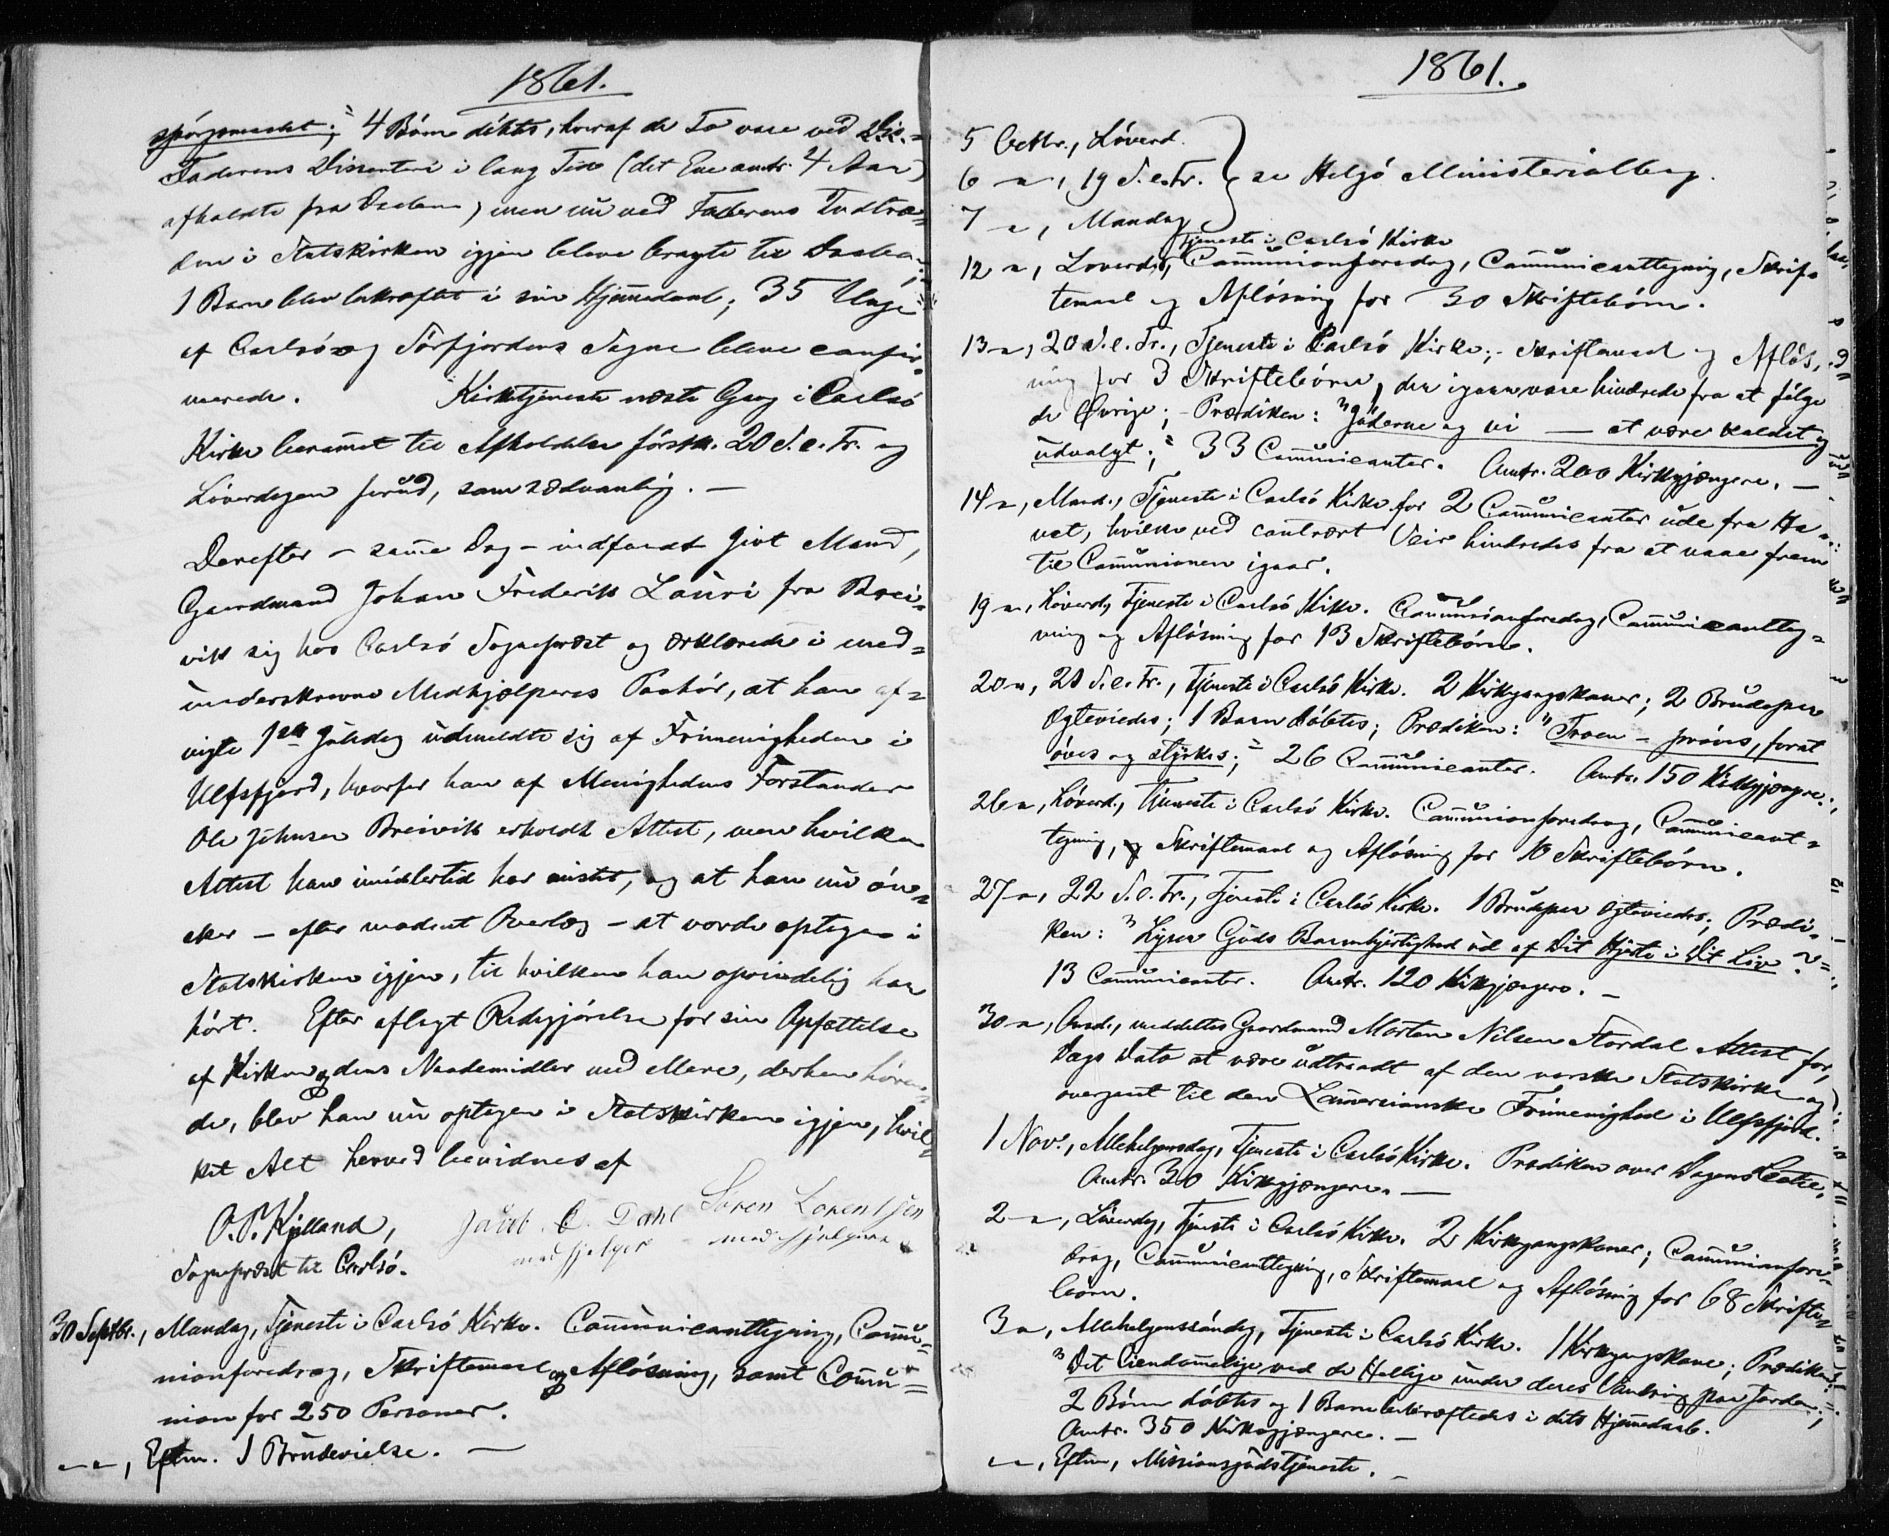 1861.
spörgsmaalet;" 4 Börn döbtes, hvoraf de To vare ved
Faderens Dissenteri i lang Tid (det Ene omtr. 4 Aar)
afholdte fra Daaben, men nu ved Faderens Indtræ-
den i Statskirken igjen bleve bragte til Daaben;
1 Barn blev bekræftet i sin Hjemmedaab; 35 Unge
af Carlsö og Sörfjordens Sogne bleve confir-
merede. Kirketjeneste næste Gang i Carlsö
Kirke berammet til Afholdelse förstk. 20 S. e. Tr. og
Löverdagen forud, som sædvanlig. —
Derefter – samme Dag – indfandt givt Mand,
Gaardmand Johan Frederik Lauri fra Brei-
vik sig hos Carlsö Sognepræst og erklærede i med-
underskrevne Medhjælperes Paahör, at han af-
vigte 1ste Juledag udmeldte sig af Frimenigheden i
Ulfsfjord, hvorfor han af Menighedens Forstander
Ole Johnsen Breivik erholdt Attest, men hvilken
Attest han imidlertid har mistet, og at han nu öns-
sker – efter modent Overlæg – at vorde optagen i
Statskirken igjen, til hvilken han oprindelig har
hört. Efter aflagt Redegjörelse for sin Opfattelse
af Kirken og dens Naademidler med Mere, derhen hören-
de, blev han nu optagen i Statskirken igjen, hvil-
ket Alt herved bevidnes af
O. P. Kjelland, Jacob C. Dahl Sören Lorentsen
medhjelper medhjelper
Sognepræst til Carlsö.
30 Septbr., Mandag, Tjeneste i Carlsö Kirke. Communicanttegning, Commu-
nionforedrag, Skriftemaal og Aflösning, samt Commu-
nion for 250 Personer.
" ", Eftm. 1 Brudevielse. —
1861.
5 Octbr., Löverd.
6 " , 19 S. e. Tr. } se Helgö Ministerialbog.
7 " , Mandag
12 " , Löverdag, Tjeneste i Carlsö Kirke Communionforedrag, Communicanttegning, Skrif-
temaal og Aflösning for 30 Skriftebörn.
13 " , 20 S. e. Tr., Tjeneste i Carlsö Kirke; Skriftemaal og Aflös-
ning for 3 Skriftebörn, der igaar vare hindrede fra at fölge
de Övrige; – Prædiken: "Jöderne og vi — at være kaldet og
udvalgt;" 33 Communicanter. Omtr. 200 Kirkegjængere. —
14 " , Mand., Tjeneste i Carlsö Kirke for 2 Communicanter ude fra Ha-
vet, hvilke ved contrært Veir hindredes fra at naae frem
til Communionen igaar.
19 " , Löverd., Tjeneste i Carlsö Kirke. Communionforedrag, Communicantteg-
ning og Aflösning for 13 Skriftebörn.
20 " , 21 S. e. Tr., Tjeneste i Carlsö Kirke. 2 Kirkegangskoner; 2 Brudepar
Ægteviedes; 1 Barn döbtes; Prædiken: "Troen – pröves, forat
öves og styrkes;" 26 Communicanter. Omtr. 150 Kirkegjængere.
26 " , Löverd., Tjeneste i Carlsö Kirke. Communionforedrag, Communicant-
tegning, Skriftemaal og Aflösning for 10 Skriftebörn.
27 " , 22 S. e. Tr., Tjeneste i Carlsö Kirke. 1 Brudepar Ægteviedes; Prædi-
ken: "Lyser Guds Barmhjertighed ud af Dit Hjerte i Dit Liv?"
13 Communicanter. Omtr. 120 Kirkegjængere. —
30 " , Onsd., meddeltes Gaardmand Morten Nilsen Stordal Attest for,
Dags Dato at være udtraadt af den norske Statskirke og
overgaaet til den Lammersianske Frimenighed i Ulfsfjord.
1 Nov., Allehelgensdag, Tjeneste i Carlsö Kirke. Prædiken over Dagens Texte.
Omtr. 30 Kirkegjængere. —
2 " , Löverdag, Tjeneste i Carlsö Kirke. 2 Kirkegangskoner; Communionfore-
drag, Communicanttegning, Skriftemaal og Aflösning for 68 Skrifte-
börn.
3 " , Allehelgenssöndag, Tjeneste i Carlsö Kirke. 1 Kirkegangskone; Prædiken:
"Det Eiendommelige ved de Hellige under deres Vandring paa Jorden;"
2 Börn döbtes og 1 Barn bekræftedes i dets Hjemmedaab.
Omtr. 350 Kirkegjængere. —
" , Eftm., Missionsgudstjeneste. —